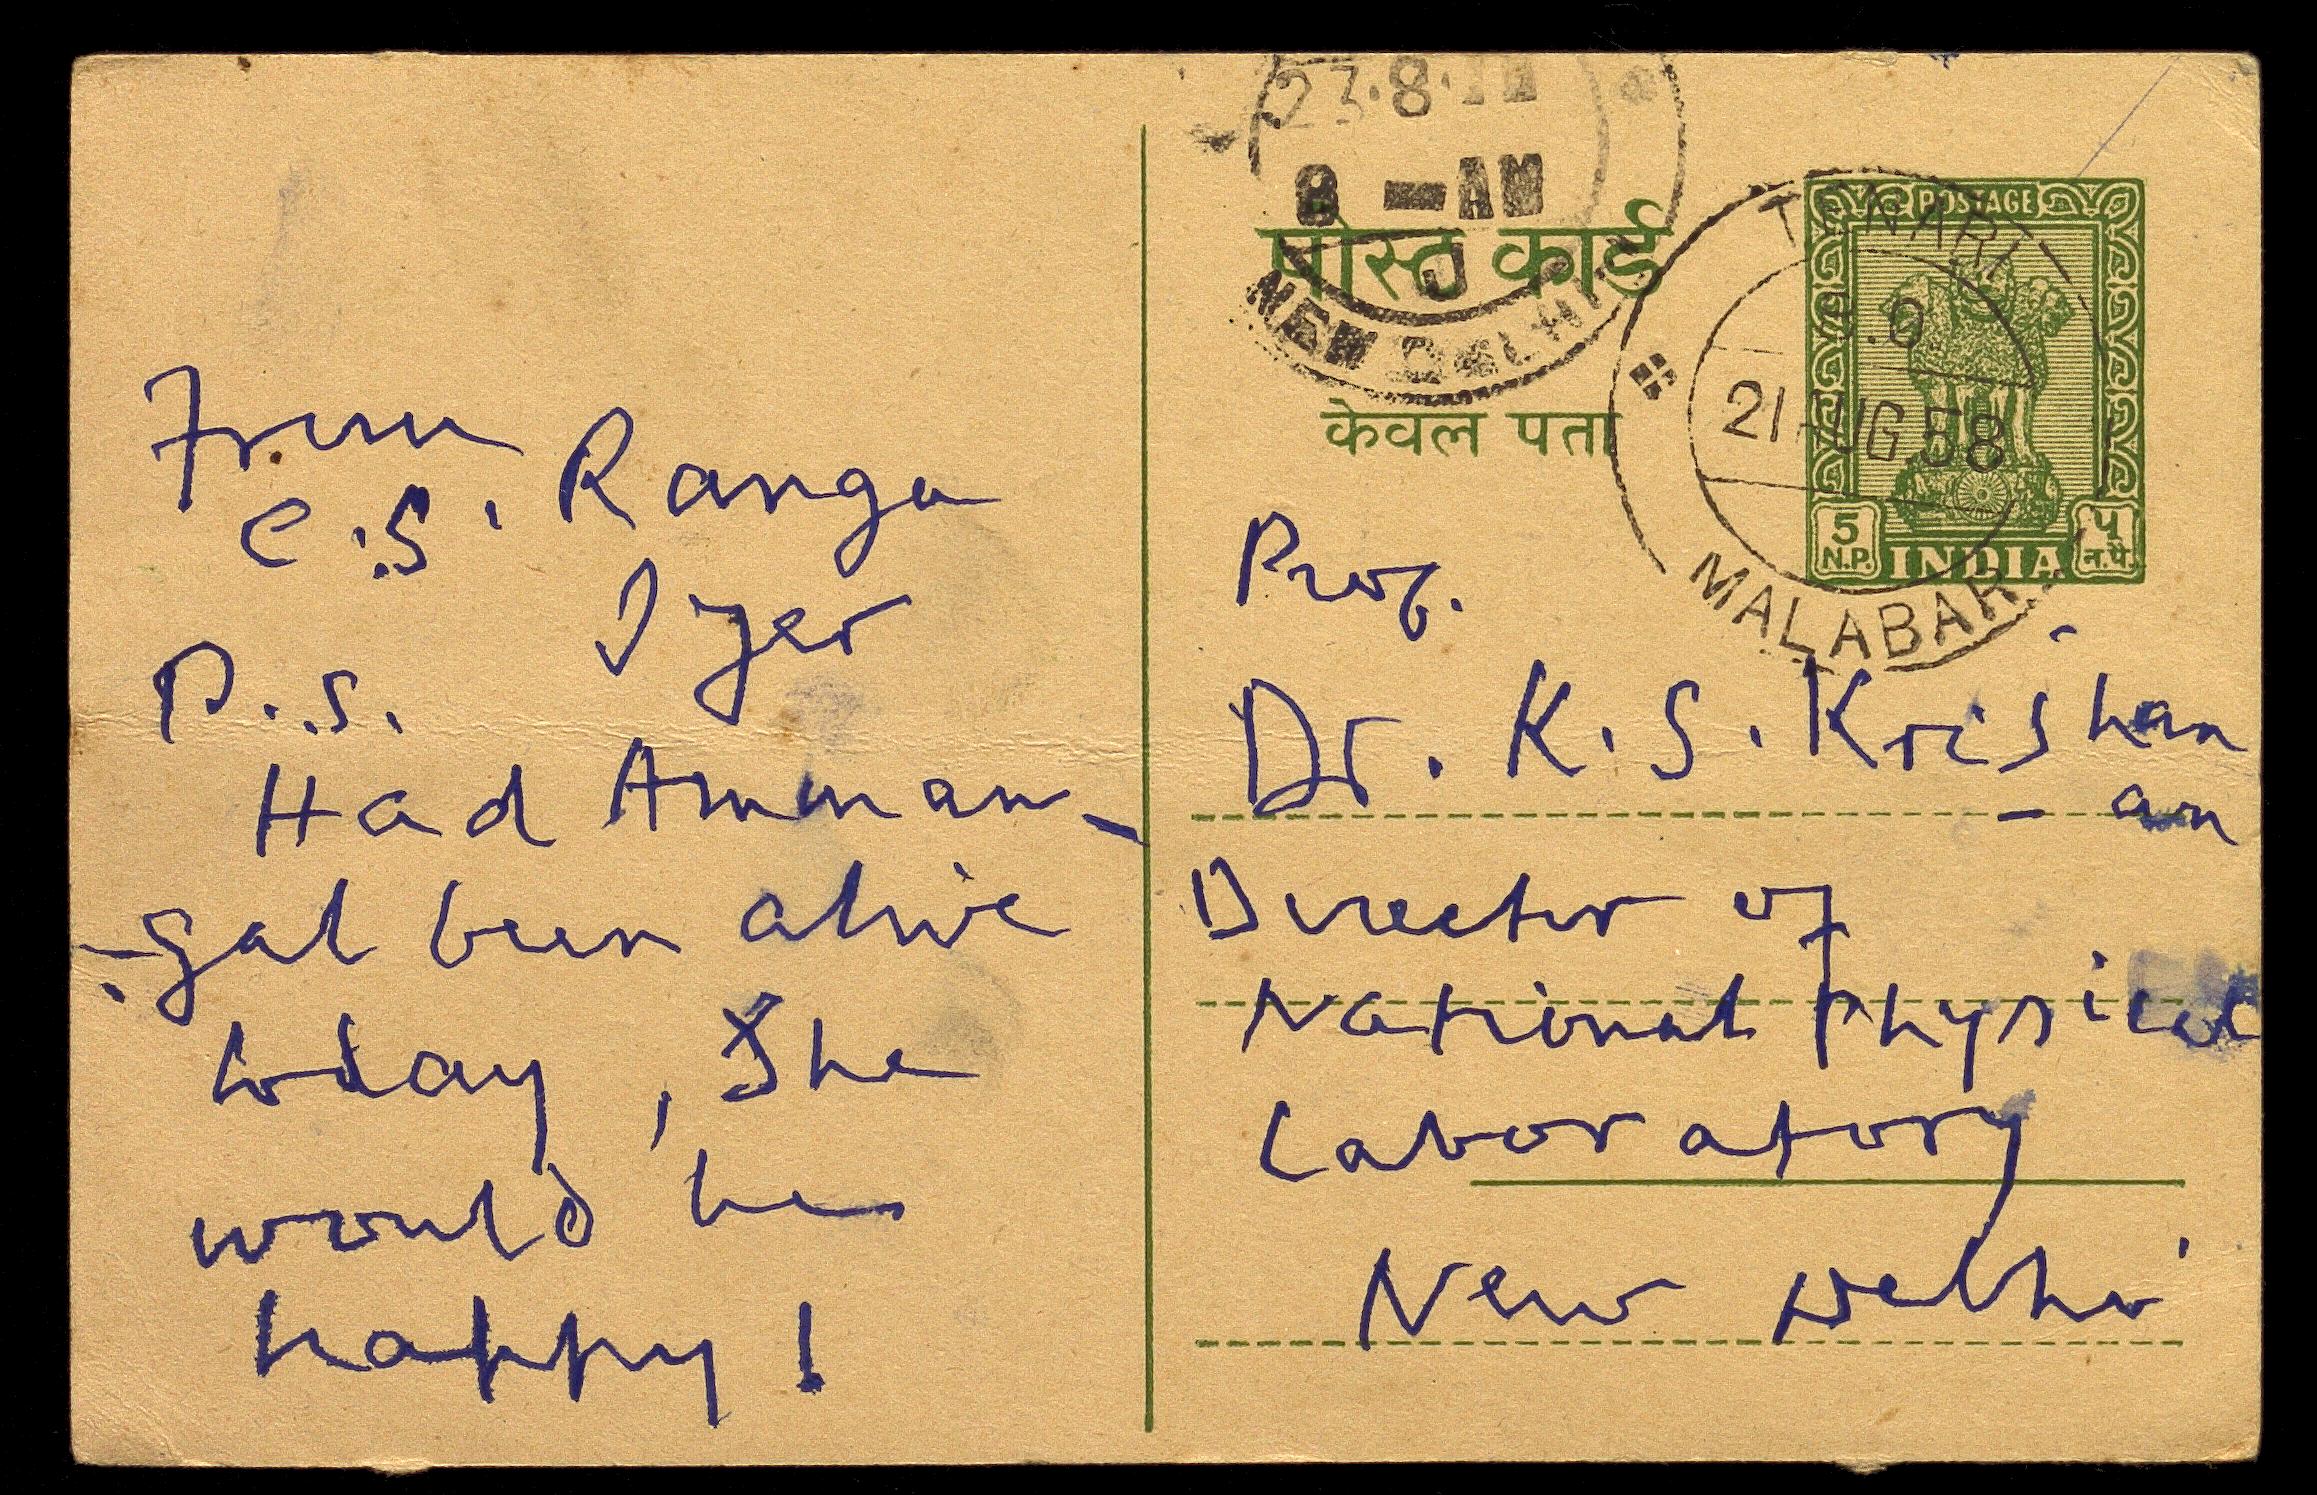 From
C.S. Ranga
Iyer
P.S.
Had Amman-
-gal been alive
today, She
would be
happy!
23.8
8 - AM
J
NEW DELHI
पोस्ट कार्ड
केवल पता
POSTAGE
S.O
21 AUG 58
MALABAR
5
N.P.
INDIA
५
न.पै.
Prof.
Dr. K. S. Krishan
- an
Director of
National Physical
Laboratory
New Delhi